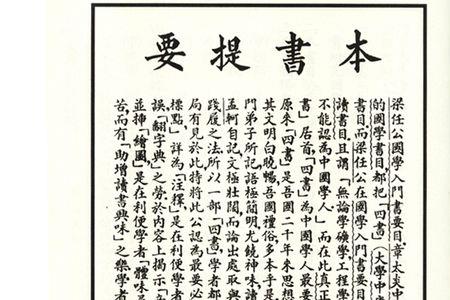 本書提要
梁任公國學入門書要目,章太炎中
的國學書目,都把「四書」(大學中
書目,而梁任公在國學入門書要目
讀書目,且謂「無論學礦學,工程學
不能認為中國學人」而在此真正
書」居首,「四書」為中國學人最要
原來「四書」是吾國二千年來思想
其文明白曉暢,吾國禮俗,多本乎是
門弟子所記,語極簡明,尤饒神味,讀
孟柯自記,文極壯闊,而論出處取與
踐履之法,所以一部「四書」學者都
局有見於此,特將此公認為最要必
標點」詳為「注釋」是在利便學者
誤「翻字典」之勞,於內容上揭示
並插「繪圖」是在利便學者「體味
苦,而有「助增讀書興味」之樂,學者